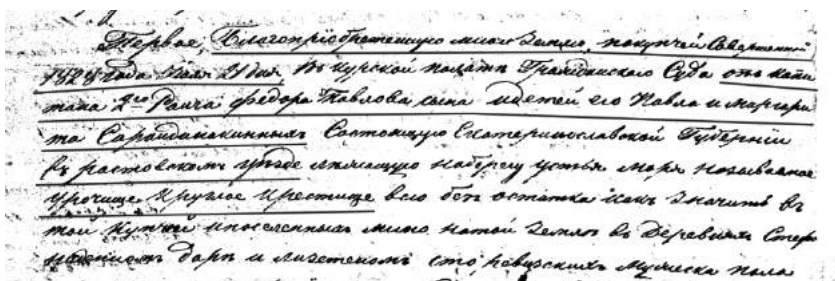 Первое, Благоприобретенную мною Землю, покупкой Совершенной
1828 года Мая 21 дня, въ Курской палаты Гражданскаго Суда отъ капи
тана 2го Ранга Федора Павлова сына и детей его Павла и Маргари
та Сарандинакиныхъ Состоящую Екатеринославской Губернии
въ растовскомъ уезде лежащую на берегу устья моря называемое
урочище Круглое Крестище всю безъ остатка какъ значитъ въ
той купчей и поселенныхъ мною на той Земле въ Деревняхъ
мужеска пола